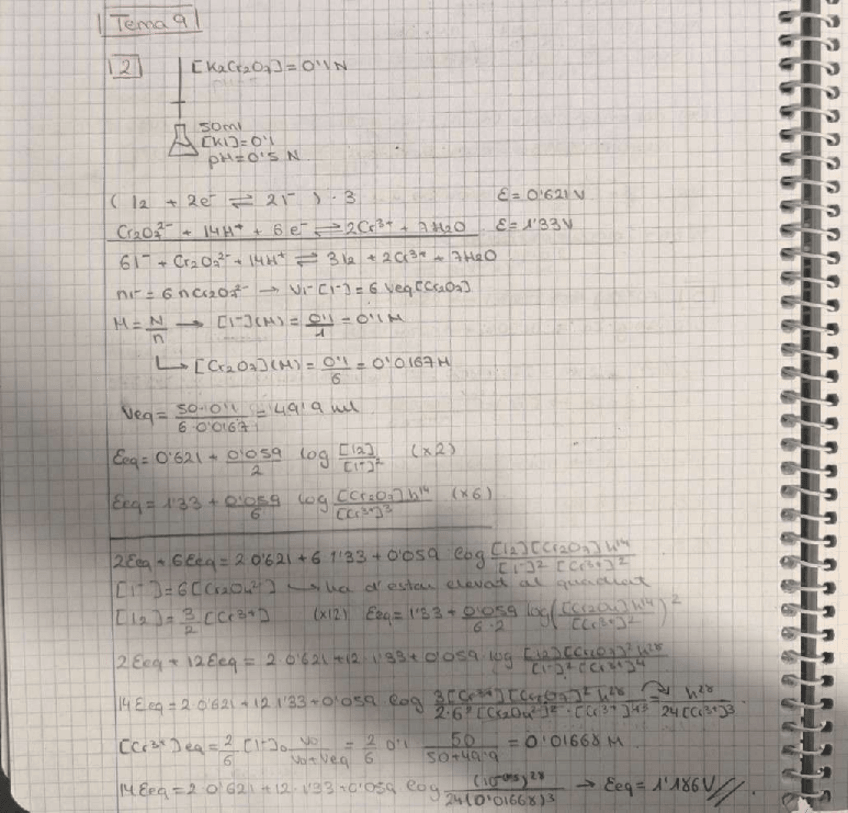 Tema 9
2
[K2Cr2O7]=0'1N
50ml
[KI]=0'1
pH=0'5 N
( I2 + 2e- ⇌ 2I- ) · 3 E=0'621V
Cr2O7^2- + 14H+ + 6e- ⇌ 2Cr^3+ + 7H2O E=1'33V
6I- + Cr2O7^2- + 14H+ ⇌ 3I2 + 2Cr^3+ + 7H2O
nI- = 6 nCr2O7^2- → VI- [I-] = 6 Veq [Cr2O7]
M = N/n → [I-](M) = 0'1/1 = 0'1M
↳ [Cr2O7](M) = 0'1/6 = 0'0167M
Veq = 50·0'1/6·0'0167 = 49'9 ml
Eeq = 0'621 + 0'059/2 log [I2]/[I-]^2 (x2)
Eeq = 1'33 + 0'059/6 log [Cr2O7]h^14/[Cr^3+]^3 (x6)
2Eeq + 6Eeq = 2·0'621 + 6·1'33 + 0'059 log [I2][Cr2O7]h^14/[I-]^2 [Cr^3+]^2
[I-] = 6[Cr2O4^2-] → ha d'estar elevat al quadrat
[I2] = 3/2 [Cr^3+] (x12) Eeq = 1'33 + 0'059/6·2 log([Cr2O4]h^14/[Cr^3+]^2)^2
2Eeq + 12Eeq = 2·0'621 + 12·1'33 + 0'059·log [I2][Cr2O7]^2 h^28/[I-]^2[Cr^3+]^4
14Eeq = 2·0'621 + 12·1'33 + 0'059 log 3[Cr^3+][Cr2O7]^2 h^28/2·6^2 [Cr2O4^2-]^2·[Cr^3+]^43 = h^28/24[Cr^3+]^3
[Cr^3+]eq = 2/6 [I-]0 V0/V0+Veq = 2/6 0'1 50/50+49'9 = 0'01668 M
14Eeq = 2·0'621 + 12·1'33 + 0'059 log (10^-0'5)^28/24(0'01668)^3 → Eeq = 1'186V//.